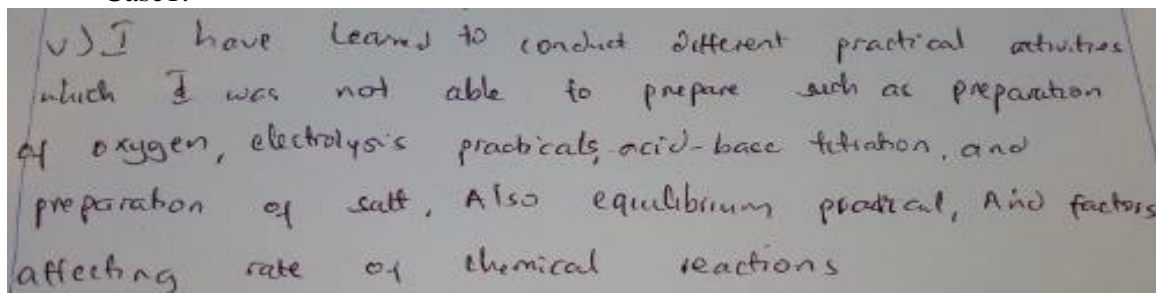 v) I have Learned to conduct different practical activities
which I was not able to prepare such as preparation
of oxygen, electrolysis practicals, acid-base titration, and
preparation of salt, Also equilibrium practical, And factors
affecting rate of chemical reactions